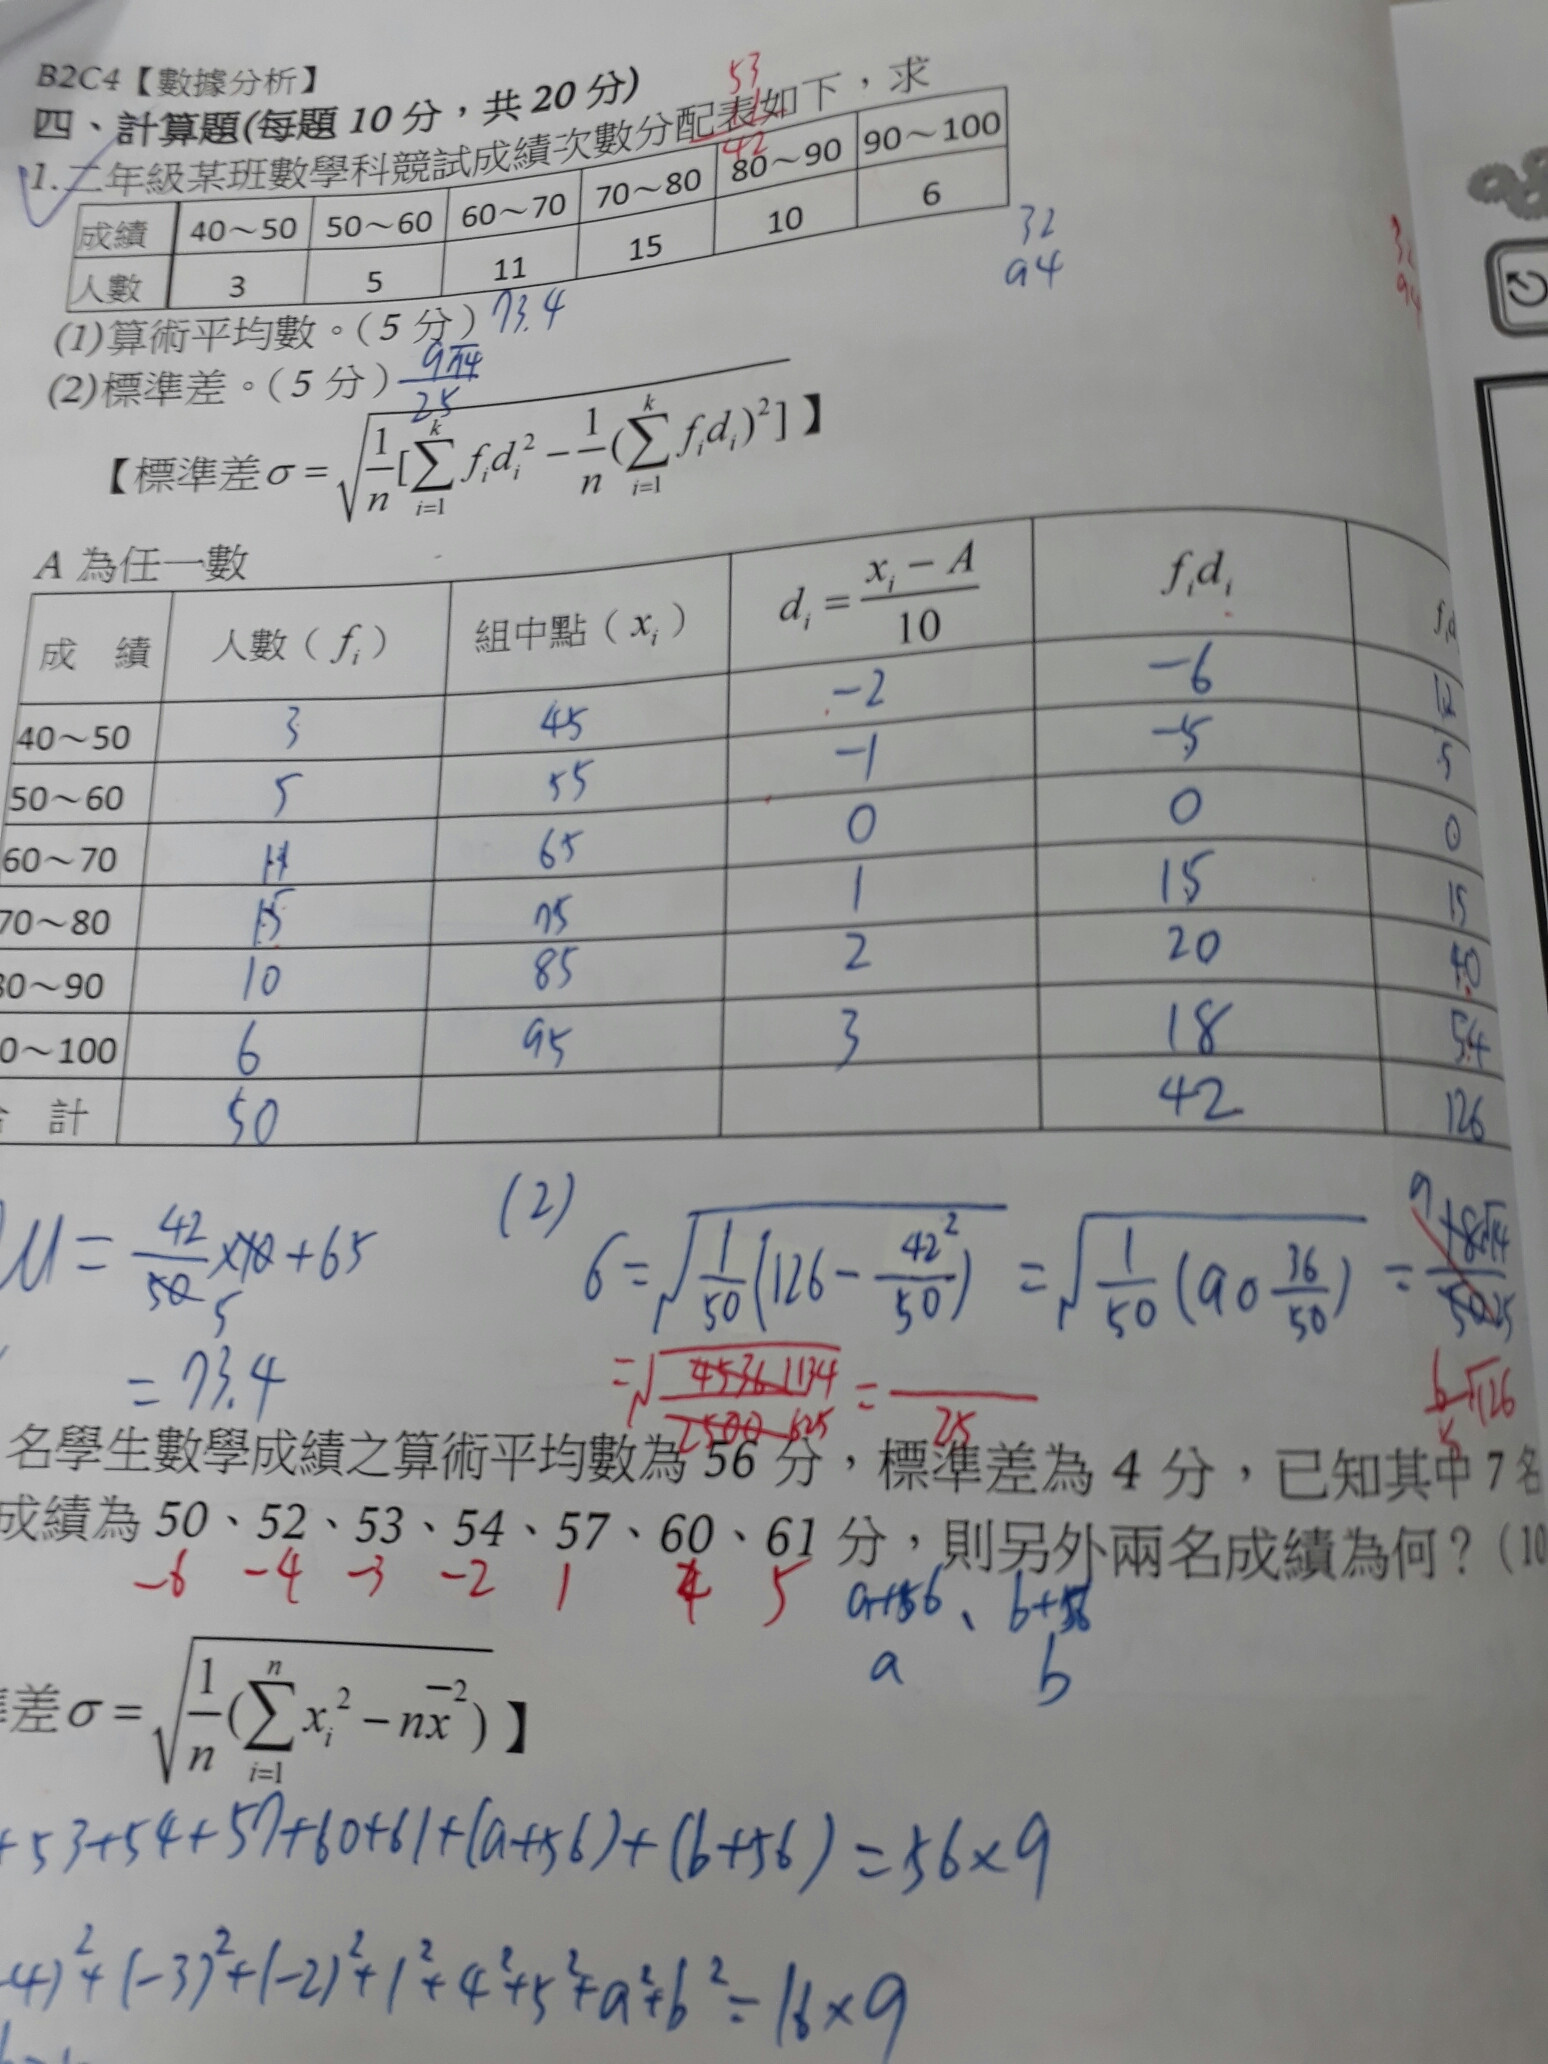 B2C4【數據分析】
四、計算題(每題 10 分，共 20 分)
53
42
1.二年級某班數學科競試成績次數分配表如下，求
成績 40～50 50～60 60～70 70～80 80～90 90～100
人數 3 5 11 15 10 6
32
94
(1)算術平均數。(5 分) 73.4
(2)標準差。(5 分) 9√14/25
【標準差σ = √(1/n[∑_{i=1}^{k} f_i d_i² − 1/n(∑_{i=1}^{k} f_i d_i)²])】
A 為任一數
成 績 人數（f_i） 組中點（x_i） d_i = (x_i − A)/10 f_i d_i
40～50 3 45 -2 -6 12
50～60 5 55 -1 -5 5
60～70 11 65 0 0 0
70～80 15 75 1 15 15
80～90 10 85 2 20 40
0～100 6 95 3 18 54
計 50 42 126
M = 42/50 ×10 + 65
5
= 73.4
(2)
6 = √(1/50(126 − 42²/50)) = √(1/50(90 36/50)) =
= √(4536 1134/2500 625) = /25
名學生數學成績之算術平均數為 56 分，標準差為 4 分，已知其中 7 名
成績為 50、52、53、54、57、60、61 分，則另外兩名成績為何？(10
-6 -4 -3 -2 1 4 5 a+56、b+56
a b
差σ = √(1/n(∑_{i=1}^{n} x_i² − nx̄²))】
+53+54+57+60+61+(a+56)+(b+56) = 56×9
-4)²+(-3)²+(-2)²+1²+4²+5²+a²+b² = 16×9